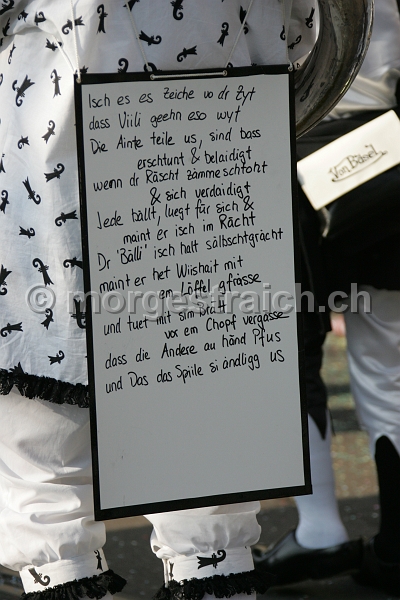 Isch es es Zeiche vo dr Zyt
dass Viili geehn eso wyt
Die Ainte teile us, sind bass
erschtunt & belaidigt
wenn dr Räscht zämmeschtoht
& sich verdaidigt
Jede bällt, luegt für sich &
maint er isch im Rächt
Dr "Bälli" isch halt sälbschtgrächt
maint er het Wiishait mit
em Löffel gfrässe
und tuet mit sim
vor em Chopf vergässe
dass die Andere au händ Pfus
und Das das Spiile si ändligg us
Von Bäsel
© morgestraich.ch